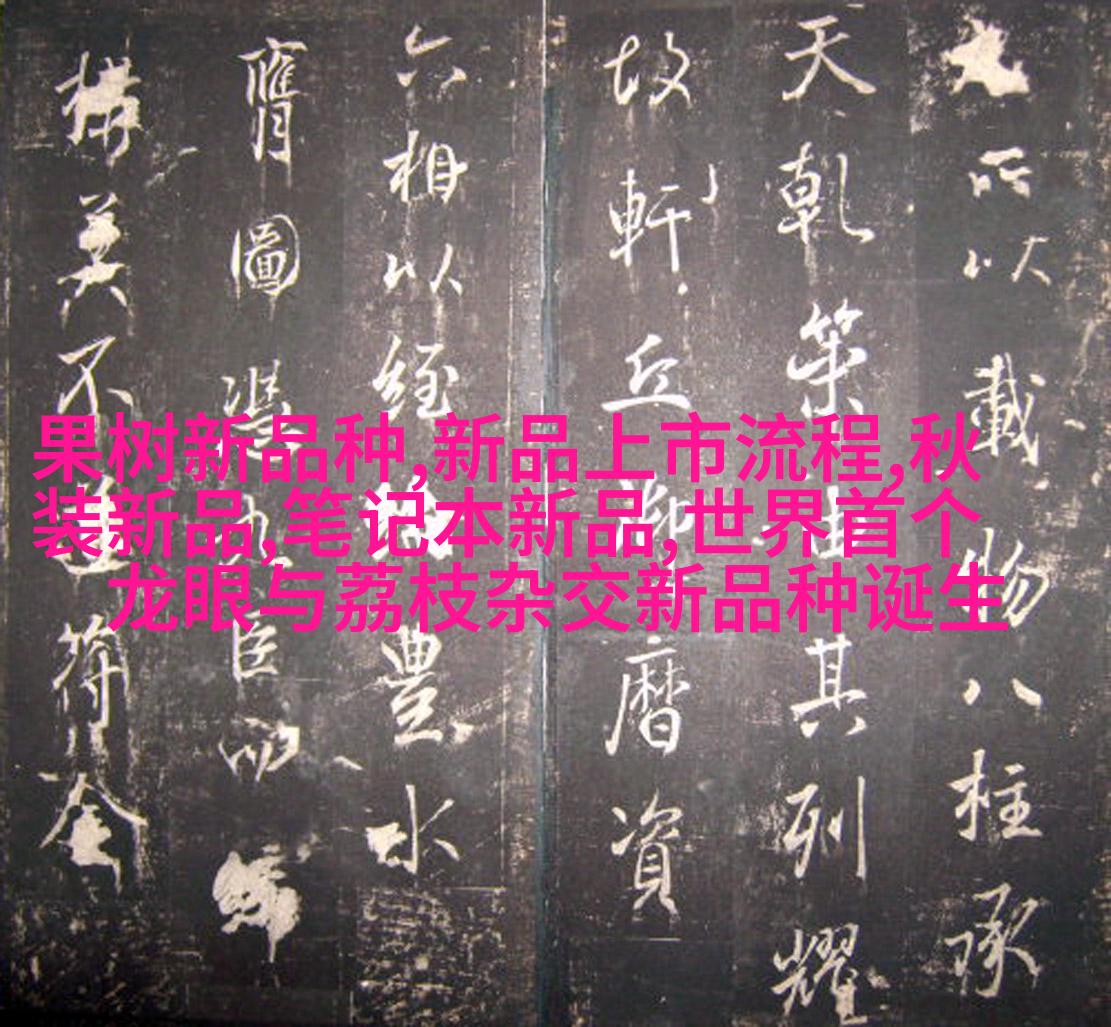 果树新品种,新品上市流程,秋
装新品,笔记本新品,世界首个
龙眼与荔枝杂交新品种诞生
所以載物八柱承
天乾策由其列耀
故軒丘御曆資
六相以經豐水
膺圖馮力臣
構莫不符金